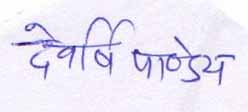 देवर्षि पाण्डेय